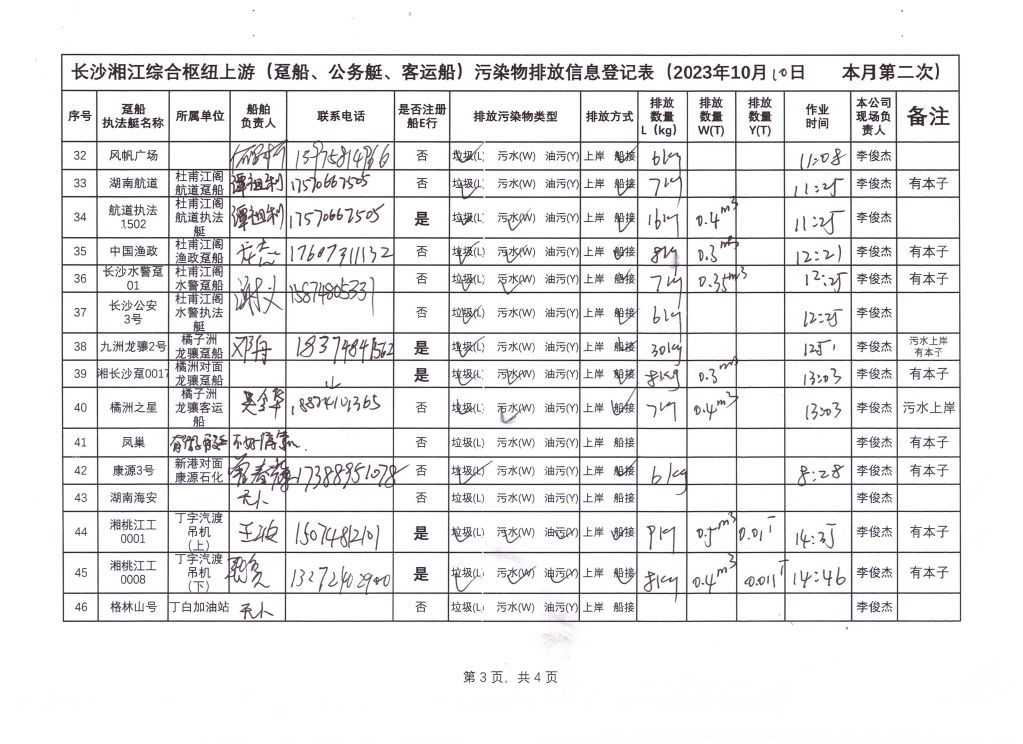 长沙湘江综合枢纽上游（趸船、公务艇、客运船）污染物排放信息登记表（2023年10月10日 本月第二次）
序号 趸船执法艇名称 所属单位 船舶负责人 联系电话 是否注册船E行 排放污染物类型 排放方式 排放数量L（kg） 排放数量W(T) 排放数量Y(T) 作业时间 本公司现场负责人 备注
32 风帆广场 否 垃圾(L) 污水(W) 油污(Y) 上岸 船接 6kg 11:08 李俊杰
33 湖南航道 杜甫江阁航道趸船 谭祖利 17570667505 否 垃圾(L) 污水(W) 油污(Y) 上岸 船接 7kg 11:25 李俊杰 有本子
34 航道执法1502 杜甫江阁航道执法艇 谭祖利 17570667505 是 垃圾(L) 污水(W) 油污(Y) 上岸 船接 16kg 0.4m³ 11:25 李俊杰
35 中国渔政 杜甫江阁渔政趸船 17607311132 否 垃圾(L) 污水(W) 油污(Y) 上岸 船接 8kg 0.3m³ 12:21 李俊杰 有本子
36 长沙水警趸01 杜甫江阁水警趸船 否 垃圾(L) 污水(W) 油污(Y) 上岸 船接 7kg 0.35m³ 12:25 李俊杰 有本子
37 长沙公安3号 杜甫江阁水警执法艇 谢义 15874805337 否 垃圾(L) 污水(W) 油污(Y) 上岸 船接 6kg 12:25 李俊杰
38 九洲龙骧2号 橘子洲龙骧趸船 邓舟 18374841562 是 垃圾(L) 污水(W) 油污(Y) 上岸 船接 30kg 1251 李俊杰 污水上岸有本子
39 湘长沙趸0017 橘洲对面龙骧趸船 是 垃圾(L) 污水(W) 油污(Y) 上岸 船接 8kg 0.3m³ 13:03 李俊杰 有本子
40 橘洲之星 橘子洲龙骧客运船 18874101365 否 垃圾(L) 污水(W) 油污(Y) 上岸 船接 7kg 0.4m³ 13:03 李俊杰 污水上岸
41 凤巢 否 垃圾(L) 污水(W) 油污(Y) 上岸 船接 李俊杰 有本子
42 康源3号 新港对面康源石化 17388951078 否 垃圾(L) 污水(W) 油污(Y) 上岸 船接 6kg 8:28 李俊杰 有本子
43 湖南海安 无人 否 垃圾(L) 污水(W) 油污(Y) 上岸 船接 李俊杰
44 湘桃江工0001 丁字汽渡吊机（上） 王波 15074812101 是 垃圾(L) 污水(W) 油污(Y) 上岸 船接 9kg 0.5m³ 0.01T 14:35 李俊杰 有本子
45 湘桃江工0008 丁字汽渡吊机（下） 13272902900 是 垃圾(L) 污水(W) 油污(Y) 上岸 船接 8kg 0.4m³ 0.011T 14:46 李俊杰 有本子
46 格林山号 丁白加油站 无人 否 垃圾(L) 污水(W) 油污(Y) 上岸 船接 李俊杰
第 3 页，共 4 页